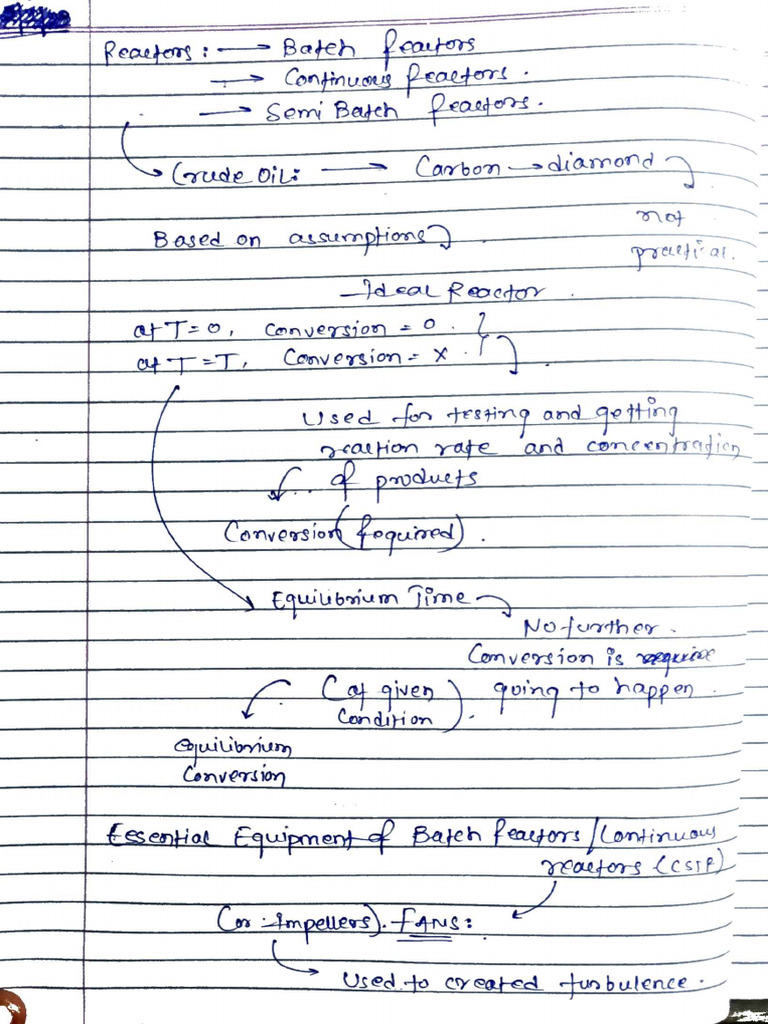 Reactors: → Batch Reactors
→ Continuous Reactors.
→ Semi Batch Reactors.
Crude Oil: → Carbon → diamond
not
Based on assumptions
practical.
– Ideal Reactor.
at T=0, Conversion = 0.
at T=T, Conversion = X.
Used for testing and getting
reaction rate and concentration
of products
Conversion (Required).
Equilibrium Time
No further.
Conversion is
(at given condition). going to happen.
equilibrium
Conversion
Essential Equipment of Batch Reactors/Continuous
reactors (CSTR)
(or Impellers). FANS:
Used to created turbulence.